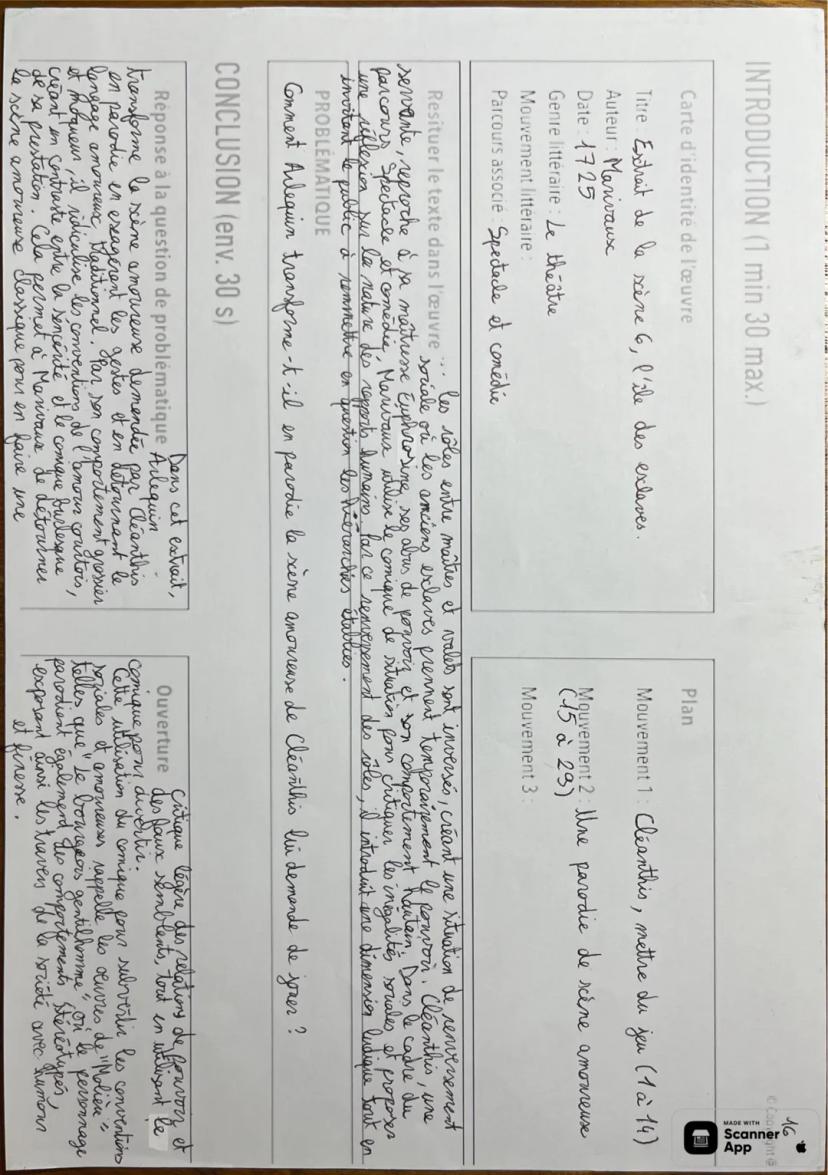 16
© Copyright @
MADE WITH
Scanner
App
INTRODUCTION (1 min 30 max.)
Carte d'identité de l'œuvre
Titre : Extrait de la scène 6, l'île des esclaves.
Auteur : Marivaux
Date : 1725
Genre littéraire : Le théâtre
Mouvement littéraire :
Parcours associé : Spectacle et comédie
Plan
Mouvement 1 : Cléanthis, mettre du jeu (1 à 14)
Mouvement 2 : Une parodie de scène amoureuse
(15 à 29)
Mouvement 3 :
Resituer le texte dans l'œuvre ... les rôles entre maîtres et valets sont inversés, créant une situation de renversement
sociale où les anciens esclaves prennent temporairement le pouvoir. Cléanthis, une
servante, reproche à sa maîtresse Euphrosine ses abus de pouvoir et son comportement hautain. Dans le cadre du
parcours Spectacle et comédie, Marivaux utilise le comique de situation pour critiquer les inégalités sociales et proposer
une réflexion sur la nature des rapports humains. Par ce renversement des rôles, il introduit une dimension ludique tout en
invitant le public à remmettre en question les hiérarchies établies.
PROBLÉMATIQUE
Comment Arlequin transforme-t-il en parodie la scène amoureuse de Cléanthis lui demande de jouer ?
CONCLUSION (env. 30 s)
Réponse à la question de problématique
Dans cet extrait,
Arlequin
transforme la scène amoureuse demandée par Cléanthis
en parodie en exagérant les gestes et en détournant le
langage amoureux traditionnel. Par son comportement grossier
et moqueur, il ridiculise les conventions de l'amour courtois,
créant un contraste entre la sincérité et le comique burlesque
de sa prestation. Cela permet à Marivaux de détourner
la scène amoureuse classique pour en faire une
Ouverture
Critique légère des relations de pouvoir et
des faux semblants, tout en utilisant le
comique pour divertir.
Cette utilisation du comique pour subvertir les conventions
sociales et amoureuses rappelle les œuvres de "Molière",
telles que "Le bourgeois gentilhomme", où le personnage
parodient également des comportements stéréotypés,
exposant ainsi les travers de la société avec humour
et finesse.